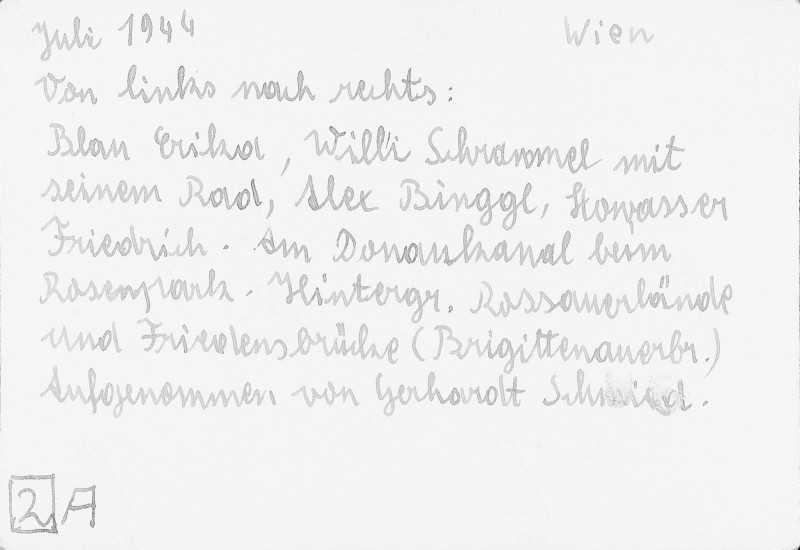 Juli 1944 Wien
Von links nach rechts:
Blau Erika, Willi Schrammel mit
seinem Rad, Alex Binggl, Stowasser
Friedrich. Am Donaukanal beim
Rosenpark. Hintergr. Rossauerlände
und Friedensbrücke (Brigittenauerbr.)
Aufgenommen von Gerhardt Schmied.
2 A